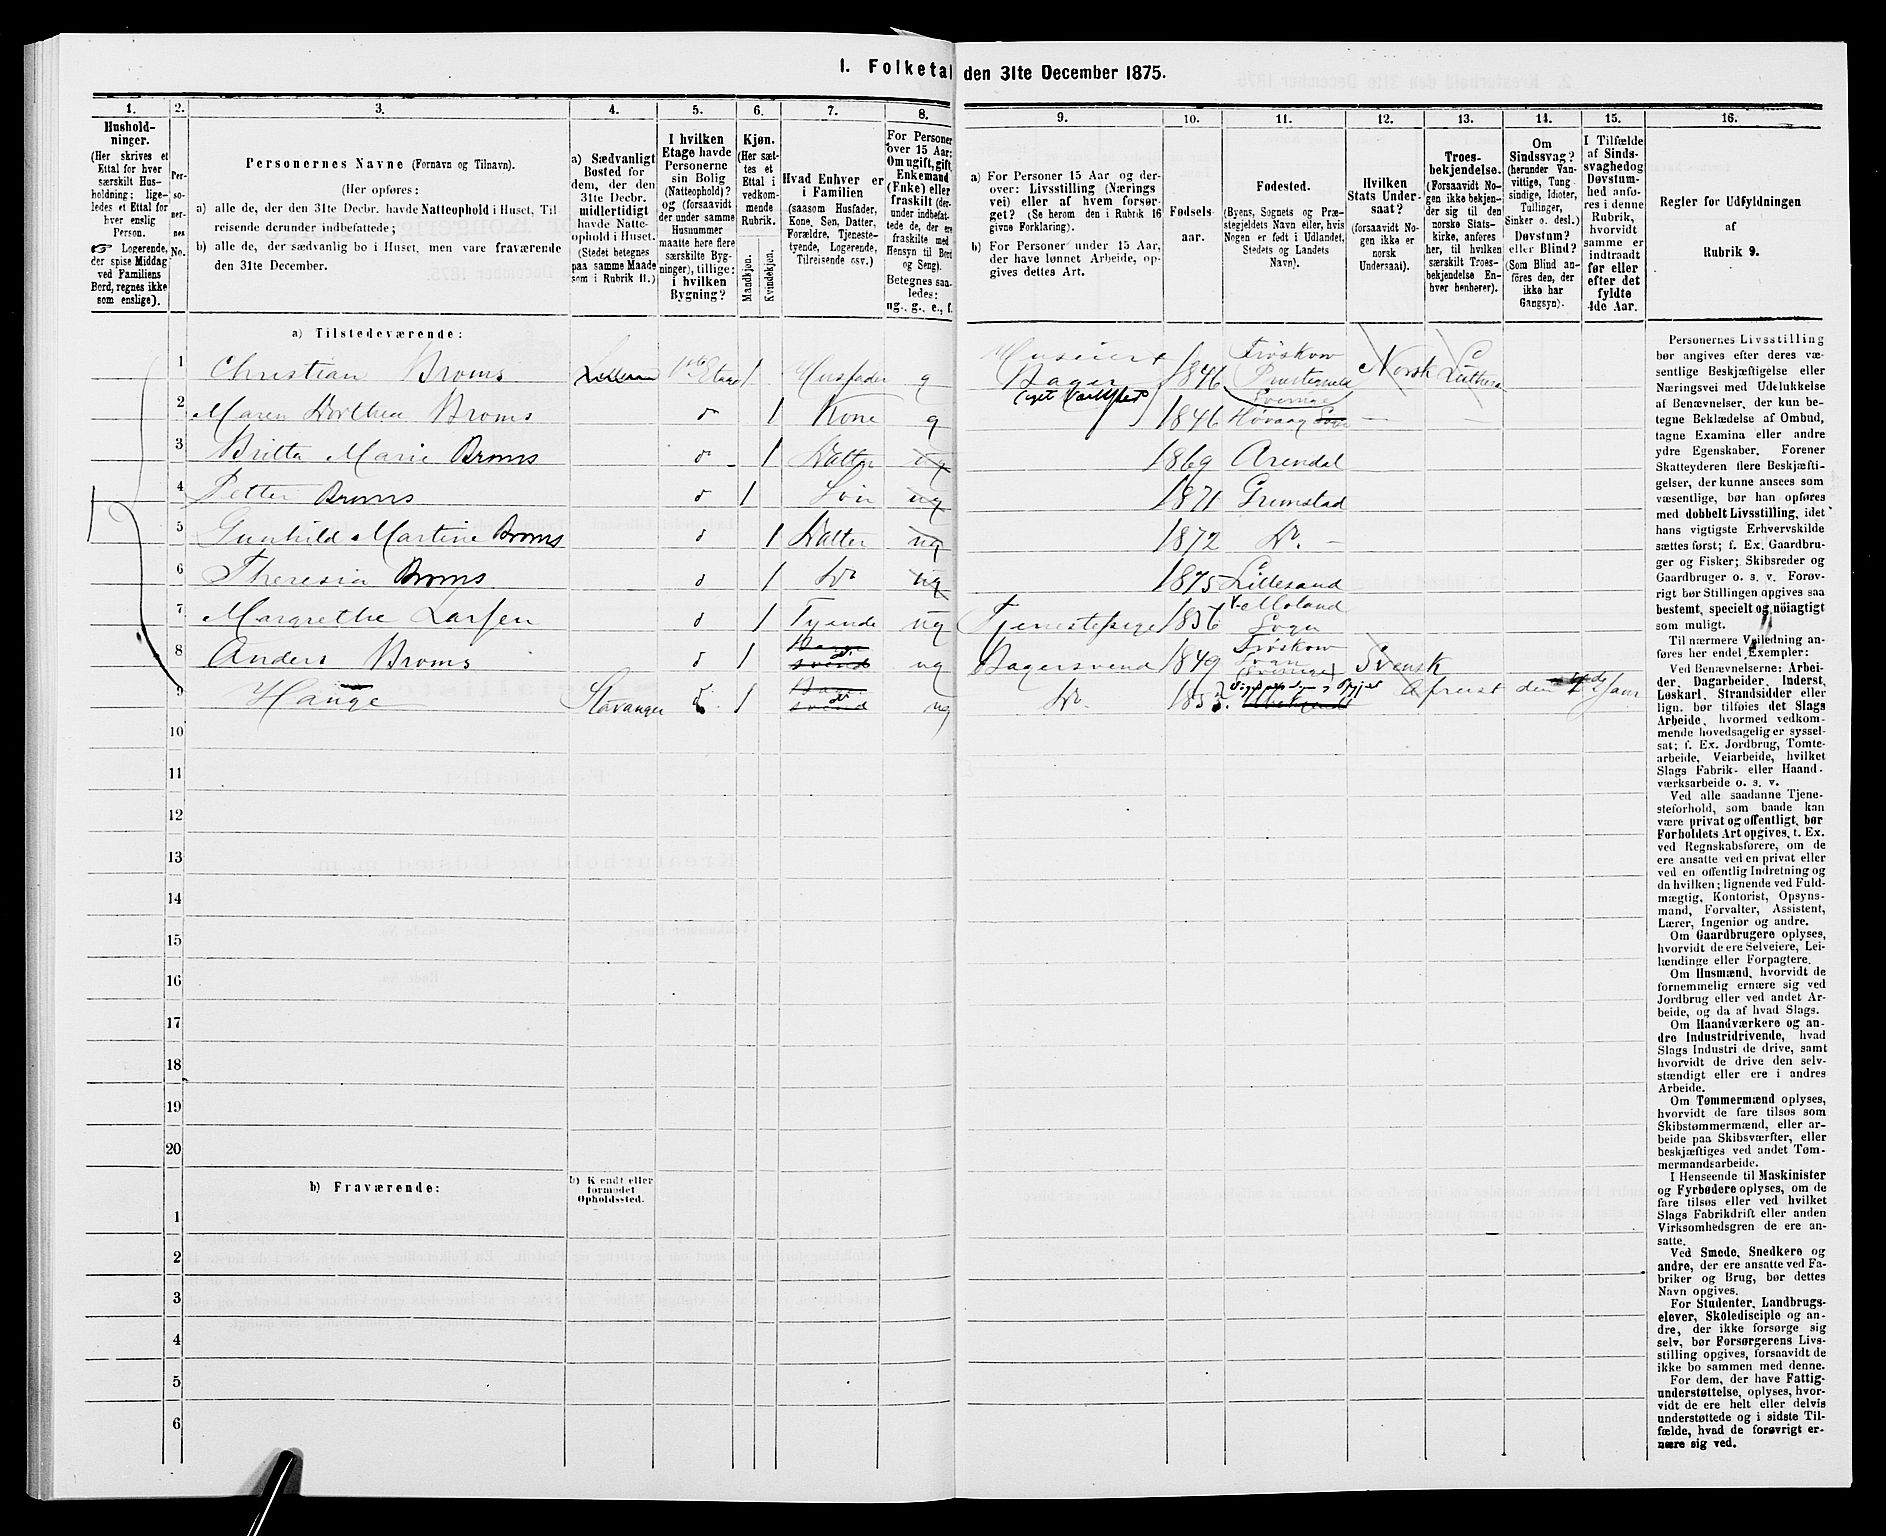 I. Folketal den 31te December 1875.
1.
Hushold-
ninger.
(Her skrives et
Ettal for hver
særskilt Hus-
holdning; lige-
ledes et Ettal for
hver enslig
Person.
☞ Logerende,
der spise Middag
ved Familiens
Bord, regnes ikke
som enslige).
2.
Per-
so-
ner-
nes
No.
3.
Personernes Navne (Fornavn og Tilnavn).
(Her opføres:
a) alle de, der den 31te Decbr. havde Natteophold i Huset, Til
reisende derunder indbefattede;
b) alle de, der sædvanlig bo i Huset, men vare fraværende
den 31te December.
4.
a) Sædvanligt
Bosted for
dem, der den
31te Decbr.
midlertidigt
havde Natte-
ophold i Huset.
(Stedet betegnes
paa samme Maade
som i Rubrik 11.)
5.
I hvilken
Etage havde
Personerne
sin Bolig
(Natteophold)?
og (forsaavidt
der under samme
Husnummer
maatte høre flere
særskilte Byg-
ninger), tillige:
i hvilken
Bygning?
6.
Kjøn.
(Her sæt-
tes et
Ettal i
vedkom-
mende
Rubrik.
Mandkjøn.
Kvindekjøn.
7.
Hvad Enhver er
i Familien
(saasom Husfader,
Kone, Søn, Datter,
Forældre, Tjeneste-
tyende, Logerende,
Tilreisende osv.)
8.
For Personer
over 15 Aar:
Om ugift, gift,
Enkemand
(Enke) eller
fraskilt (der-
under indbefat-
tede de, der ere
fraskilte med
Hensyn til Bord
og Seng).
Betegnes saa-
ledes:
ug., g., e., f.
9.
a) For Personer 15 Aar og der-
over: Livsstilling (Nærings
vei) eller af hvem forsør-
get? (Se herom den i Rubrik 16
givne Forklaring).
b) For Personer under 15 Aar,
der have lønnet Arbeide, op-
gives dettes Art.
10.
Fødsels-
aar.
11.
Fødested.
(Byens, Sognets og Præ-
stegjeldets Navn eller, hvis
Nogen er født i Udlandet,
Stedets og Landets
Navn).
12.
Hvilken
Stats Under-
saat?
(forsaavidt No-
gen ikke er
norsk
Undersaat).
13.
Troes-
bekjendelse.
(Forsaavidt No-
gen ikke bekjen-
der sig til den
norske Stats-
kirke, anføres
her, til hvilken
særskilt Troes-
bekjendelse En-
hver henhører).
14.
Om
Sindssvag?
(herunder Van-
vittige, Tung
sindige, Idioter,
Tullinger,
Sinker o. desl.)
Døvstum?
eller Blind?
(Som Blind an-
føres den, der
ikke har
Gangsyn).
15.
I Tilfælde
af Sinds-
svaghed og
Døvstum-
hed anfø-
res i denne
Rubrik,
hvorvidt
samme er
indtraadt
før eller
efter det
fyldte
4de Aar.
16.
Regler for Udfyldningen
af
Rubrik 9.
a) Tilstedeværende:
1 Christian Broms 1ste Etage 1 Husfader g Huseier Bager 1846 Norsk Luthersk
2 Maren Dorthea Broms do 1 Kone g 1846 Høvaag
3 Britta Marie Broms do 1 Datter ug 1869 Arendal
4 Petter Broms do 1 Søn ug 1871 Grimstad
5 Gunhild Martine Broms do 1 Datter ug 1872 Do.
6 Theresia Broms do 1 Do ug 1875 Lillesand
7 Margrethe Larsen do 1 Tyende ug Tjenestepige 1856 V. Moland Sogn
8 Anders Broms do 1 ug Bagersvend 1849 Svensk
9 Hauge Stavanger 1 ug Do. Afreist den
10
11
12
13
14
15
16
17
18
19
20
b) Fraværende:
b) Kjendt eller
formodet
Opholdssted.
1
2
3
4
5
6
Personernes Livsstilling
bør angives efter deres væ-
sentlige Beskjæftigelse eller
Næringsvei med Udelukkelse
af Benævnelser, der kun be-
tegne Beklædelse af Ombud,
tagne Examina eller andre
ydre Egenskaber. Forener
Skatteyderen flere Beskjæfti-
gelser, der kunne ansees som
væsentlige, bør han opføres
med dobbelt Livsstilling, idet
hans vigtigste Erhvervskilde
sættes først; f. Ex. Gaardbru-
ger og Fisker; Skibsreder og
Gaardbruger o. s. v. Forøv-
rigt bør Stillingen opgives saa
bestemt, specielt og nøiagtigt
som muligt.
Til nærmere Veiledning an-
føres her endel Exempler:
Ved Benævnelserne: Arbei-
der, Dagarbeider, Inderst,
Løskarl, Strandsidder eller
lign. bør tilføies det Slags
Arbeide, hvormed vedkom-
mende hovedsagelig er syssel-
sat; f. Ex. Jordbrug, Tomte-
arbeide, Veiarbeide, hvilket
Slags Fabrik- eller Haand-
værksarbeide o. s. v.
Ved alle saadanne Tjene-
steforhold, som baade kan
være privat og offentligt, bør
Forholdets Art opgives, t. Ex.
ved Regnskabsførere, om de
ere ansatte ved en privat eller
ved en offentlig Indretning og
da hvilken; lignende ved Fuld-
mægtig, Kontorist, Opsyns-
mand, Forvalter, Assistent,
Lærer, Ingeniør og andre.
Om Gaardbrugere oplyses,
hvorvidt de ere Selveiere, Lei-
lændinge eller Forpagtere.
Om Husmænd, hvorvidt de
fornemmelig ernære sig ved
Jordbrug eller ved andet Ar-
beide, og da af hvad Slags.
Om Haandværkere og an-
dre Industridrivende, hvad
Slags Industri de drive, samt
hvorvidt de drive den selv-
stændigt eller ere i andres
Arbeide.
Om Tømmermænd oplyses,
hvorvidt de fare tilsøs som
Skibstømmermænd, eller ar-
beide paa Skibsværfter, eller
beskjæftiges ved andet Tøm-
mermandsarbeide.
I Henseende til Maskinister
og Fyrbødere oplyses, om de
fare tilsøs eller ved hvilket
Slags Fabrikdrift eller anden
Virksomhedsgren de ere an-
satte.
Ved Smede, Snedkere og
andre, der ere ansatte ved Fa-
briker og Brug, bør dettes
Navn opgives.
For Studenter, Landbrugs-
elever, Skoledisciple og an-
dre, der ikke forsørge sig
selv, bør Forsørgerens Livs-
stilling opgives, forsaavidt de
ikke bo sammen med denne.
For dem, der have Fattig-
understøttelse, oplyses, hvor-
vidt de ere helt eller delvis
understøttede og i sidste Til-
fælde, hvad de forøvrigt er-
nære sig ved.